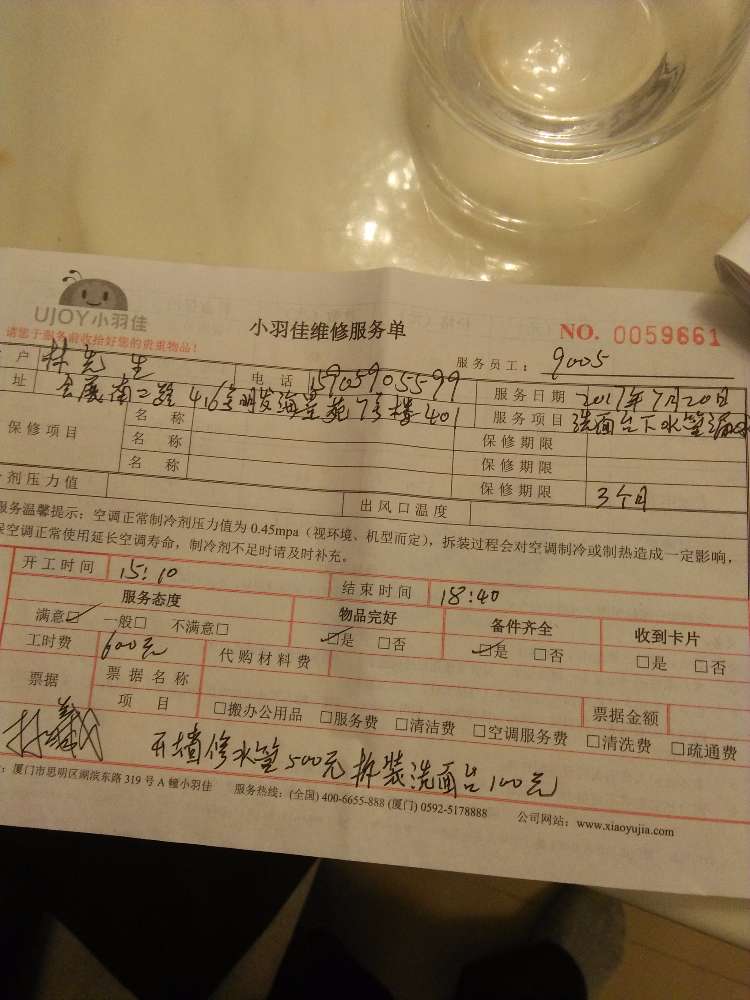 UJOY小羽佳
请您于服务前收拾好您的贵重物品!
小羽佳维修服务单
NO. 0059661
户 林先生 电话 15905905599 服务员工: 9005
址 会展南二路416号明发海景苑7号楼401 服务日期 2017年7月20日
保修项目 名称 服务项目 洗面台下水管漏水
名称 保修期限
名称 保修期限
剂压力值 保修期限 3个月
出风口温度
服务温馨提示: 空调正常制冷剂压力值为 0.45mpa (视环境、机型而定), 拆装过程会对空调制冷或制热造成一定影响,
保空调正常使用延长空调寿命, 制冷剂不足时请及时补充。
开工时间 15:10 结束时间 18:40
服务态度 物品完好 备件齐全 收到卡片
满意☑ 一般□ 不满意□ ☑是 □否 ☑是 □否 □是 □否
工时费 600元 代购材料费
票据 票据名称
项目 □搬办公用品 □服务费 □清洁费 □空调服务费 □清洗费 □疏通费 票据金额
开墙修水管500元 拆装洗面台100元
: 厦门市思明区湖滨东路 319 号 A 幢小羽佳 服务热线: (全国) 400-6655-888 (厦门) 0592-5178888 公司网站: www.xiaoyujia.com